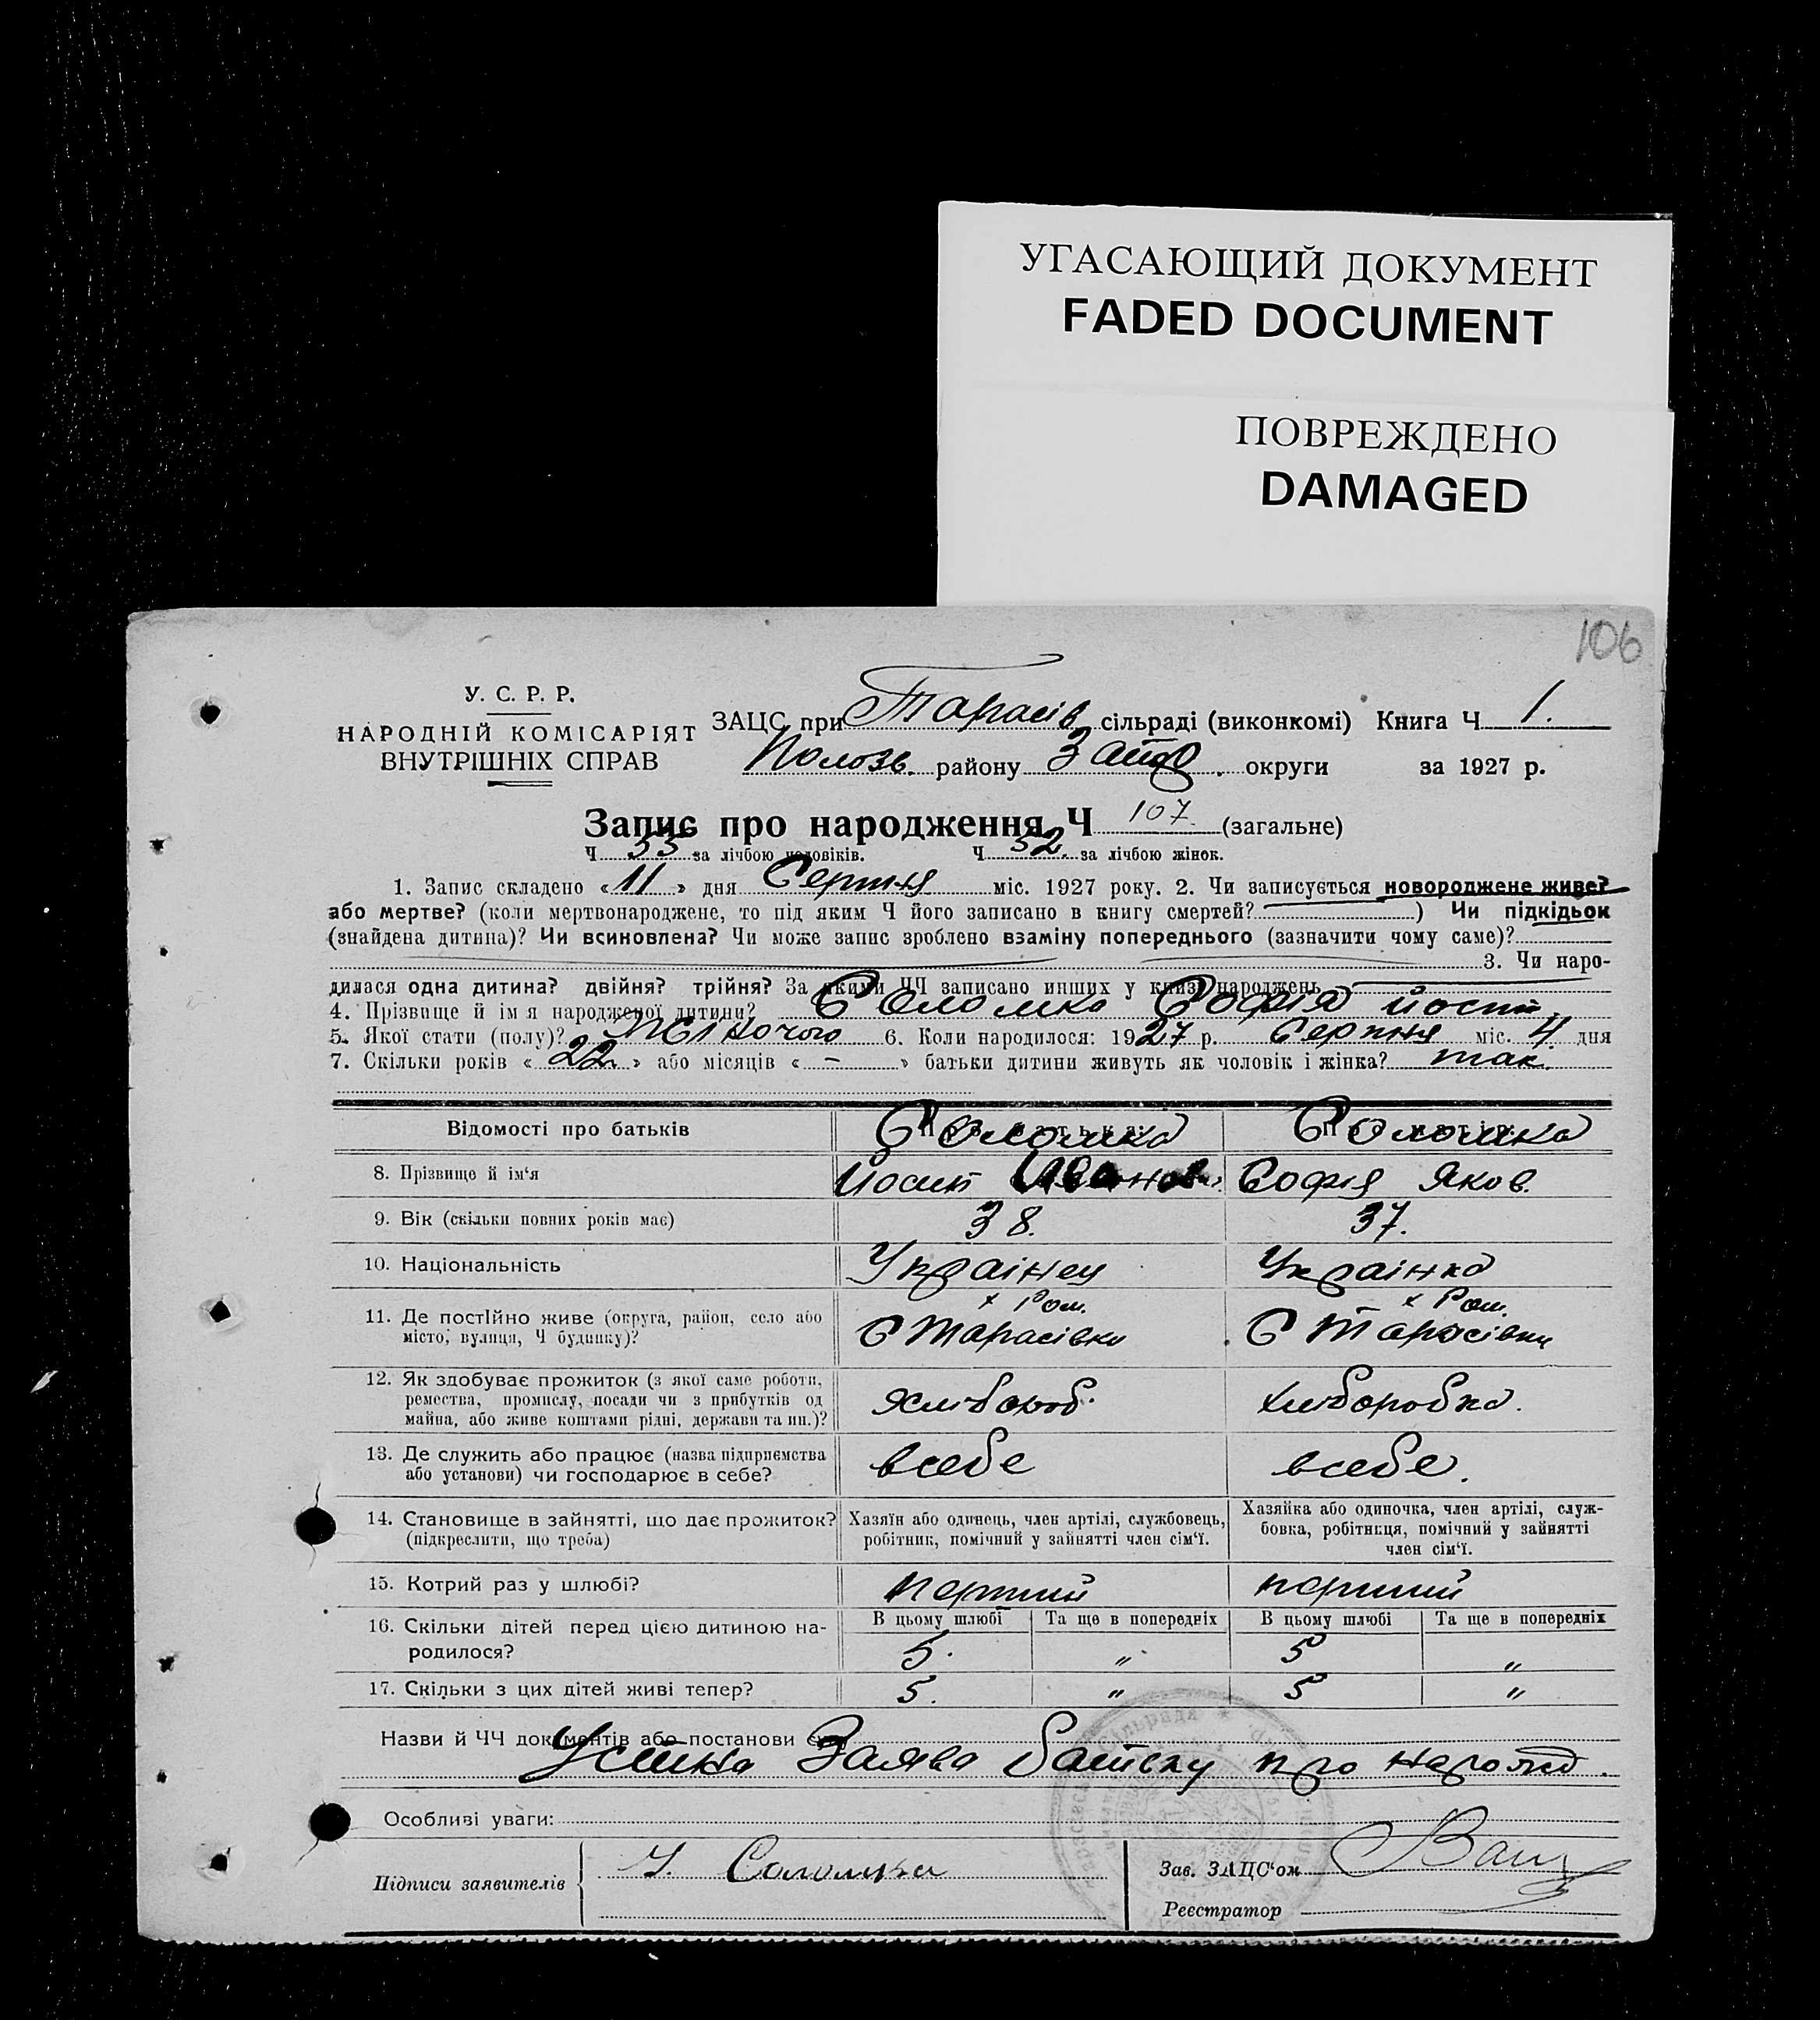 УГАСАЮЩИЙ ДОКУМЕНТ
FADED DOCUMENT
ПОВРЕЖДЕНО
DAMAGED
106
У. С. Р. Р.
НАРОДНІЙ КОМІСАРІЯТ
ВНУТРІШНІХ СПРАВ
ЗАЦС при Тарасів сільраді (виконкомі) Книга Ч 1.
Полозь. району Запо. округи за 1927 р.
Запис про народження Ч 107 (загальне)
Ч 55 за лічбою чоловіків. Ч 52. за лічбою жінок.
1. Запис складено «11» дня Серпня міс. 1927 року. 2. Чи записується новороджене живе?
або мертве? (коли мертвонароджене, то під яким Ч його записано в книгу смертей? ) Чи підкідьок
(знайдена дитина)? Чи всиновлена? Чи може запис зроблено взаміну попереднього (зазначити чому саме)?
3. Чи наро-
дилася одна дитина? двійня? трійня? За якими ЧЧ записано инших у книзі народжень
4. Прізвище й ім я народженої дитини? Соломка Софія йосип.
5. Якої стати (полу)? Жіночого 6. Коли народилося: 1927 р. Серпня міс. 4. дня
7. Скільки років «22.» або місяців «-» батьки дитини живуть як чоловік і жінка? так.
Відомості про батьків Соломка Соломка
8. Прізвище й ім‘я Йосип Иванов. Софія Яков.
9. Вік (скільки повних років має) 38. 37.
10. Національність Українец Українка
11. Де постійно живе (округа, район, село або
місто, вулиця, Ч будинку)?
х Ром. С Тарасівка
х Ром. С Тарасівка
12. Як здобуває прожиток (з якої саме роботи,
ремества, промислу, посади чи з прибутків од
майна, або живе коштами рідні, держави та ин.)?
хлібороб. хліборобка.
13. Де служить або працює (назва підприємства
або установи) чи господарює в себе?
всебе всебе.
14. Становище в зайнятті, що дає прожиток?
(підкреслити, що треба)
Хазяїн або одинець, член артілі, службовець,
робітник, помічний у зайнятті член сім‘ї.
Хазяйка або одиночка, член артілі, служ-
бовка, робітниця, помічний у зайнятті
член сім‘ї.
15. Котрий раз у шлюбі? перший перший
16. Скільки дітей перед цією дитиною на-
родилося?
В цьому шлюбі Та ще в попередніх В цьому шлюбі Та ще в попередніх
5. " 5 "
17. Скільки з цих дітей живі тепер? 5. " 5 "
Назви й ЧЧ документів або постанови
Устна Заява батьку про народ.
Особливі уваги:
Підписи заявителів Й. Соломка
Зав. ЗАЦС‘ом
Реєстратор